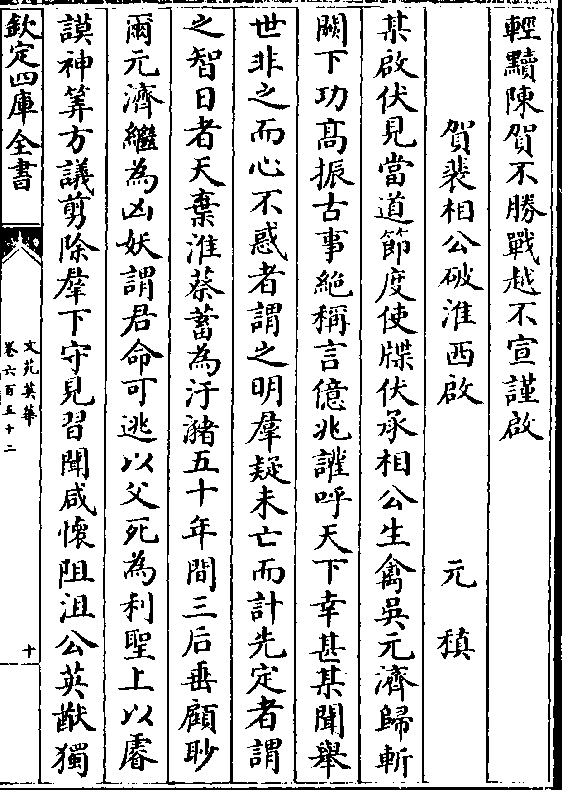 輕黷陳賀不勝戰越不宣謹啟
賀裴相公破淮西啟 元稹
某啟伏見當道節度使牒伏承相公生禽吳元濟歸斬
闕下功髙振古事絶稱言億兆讙呼天下幸甚某聞舉
世非之而心不惑者謂之明羣疑未亡而計先定者謂
之智日者天棄淮蔡蓄為汙瀦五十年間三后垂顧眇
爾元濟繼為凶妖謂君命可逃以父死為利聖上以睿
謨神筭方議剪除羣下守見習聞咸懷阻沮公英猷獨
欽定四庫全書
文苑英華
卷六百五十二
十